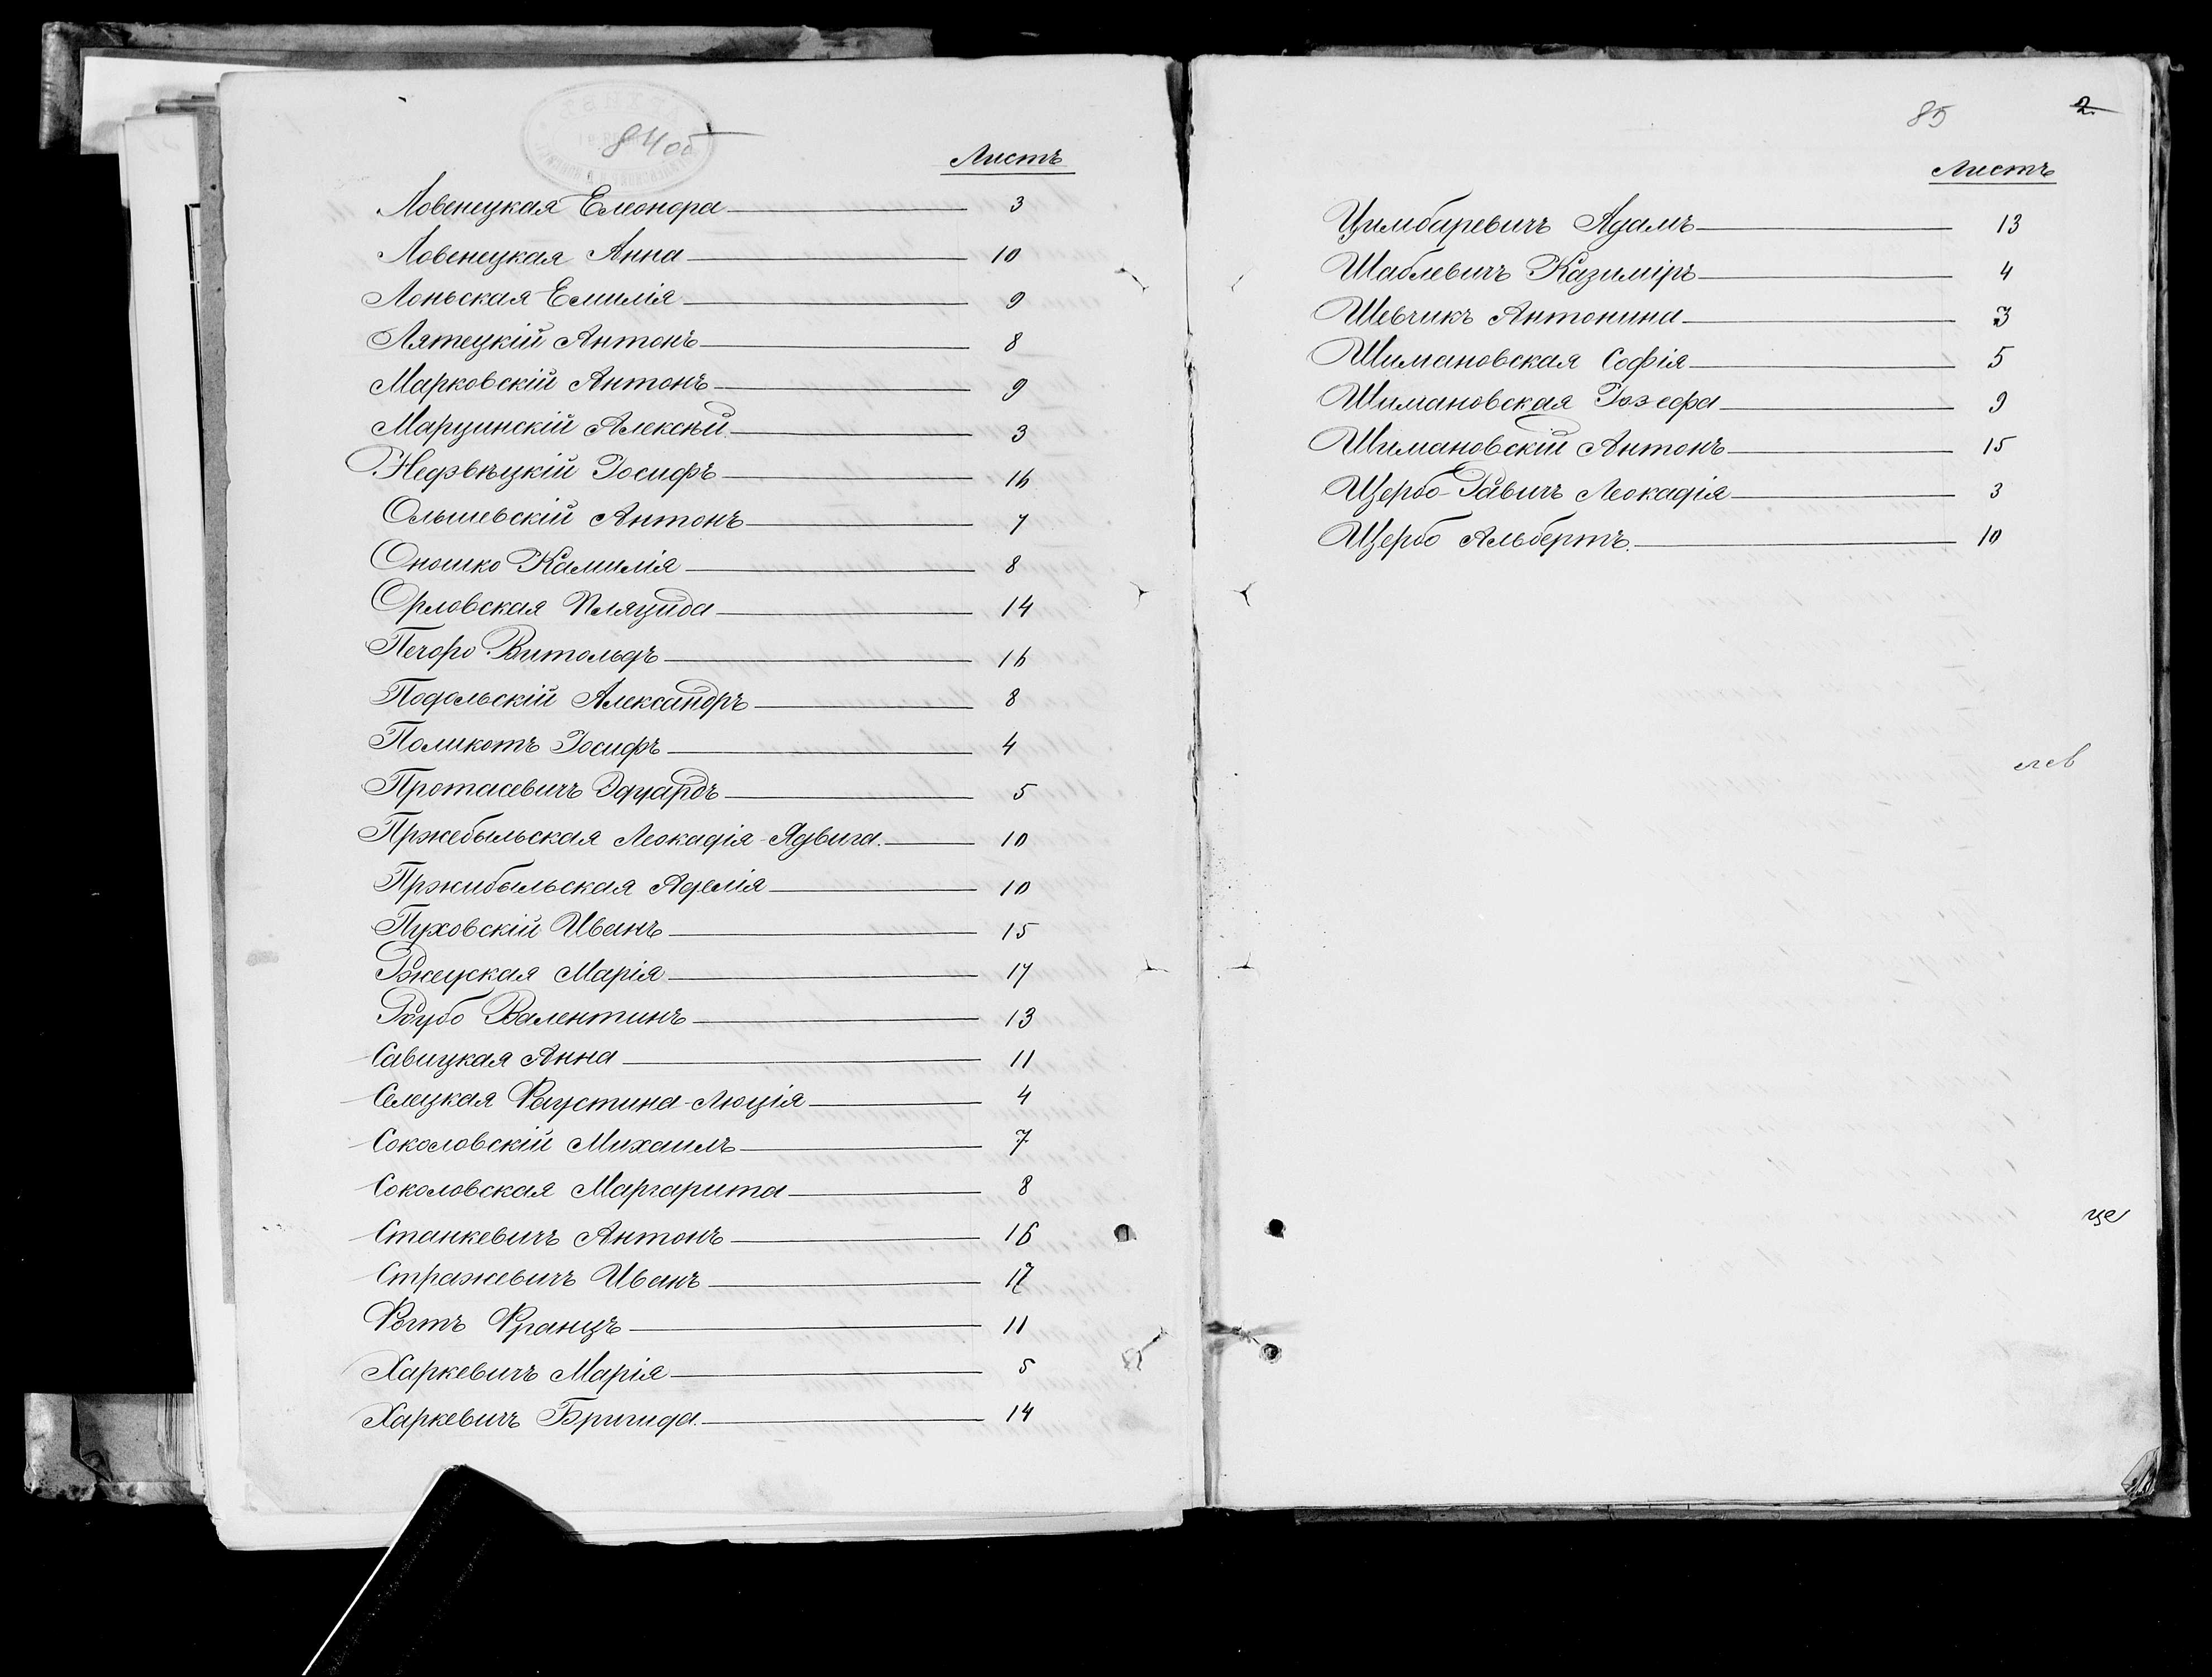 84об
Листъ
Ловенецкая Елеонора 3
Ловенецкая Анна 10
Лоньская Емилія 9
Лятецкій Антонъ 8
Марковскій Антонъ 9
Марцинскій Алексѣй 3
Недзвѣцкій Іосифъ 16
Ольшевскій Антонъ 7
Оношко Камилія 8
Орловская Пляцида 14
Печоро Витольдъ 16
Подольскій Александръ 8
Поликотъ Іосифъ 4
Протасевичъ Эдуардъ 5
Пржебыльская Леокадія-Ядвига. 10
Пржибыльская Аделія 10
Пуховскій Иванъ 15
Ржеуская Марія 17
Рубо Валентинъ 13
Савицкая Анна 11
Селецкая Фаустина-Люція 4
Соколовскій Михаилъ 7
Соколовская Маргарита 8
Станкевичъ Антонъ 16
Стражевичъ Иванъ 17
Фогтъ Францъ 11
Харкевичъ Марія 5
Харкевичъ Бригида. 14
85 2
Листъ
Цимбаревичъ Адамъ 13
Шаблевичъ Казиміръ 4
Шевчикъ Антонина 3
Шимановская Софія 5
Шимановская Іозефа 9
Шимановскій Антонъ 15
Щербо-Равичъ Леокадія 3
Щербо Альбертъ. 10
лев
це